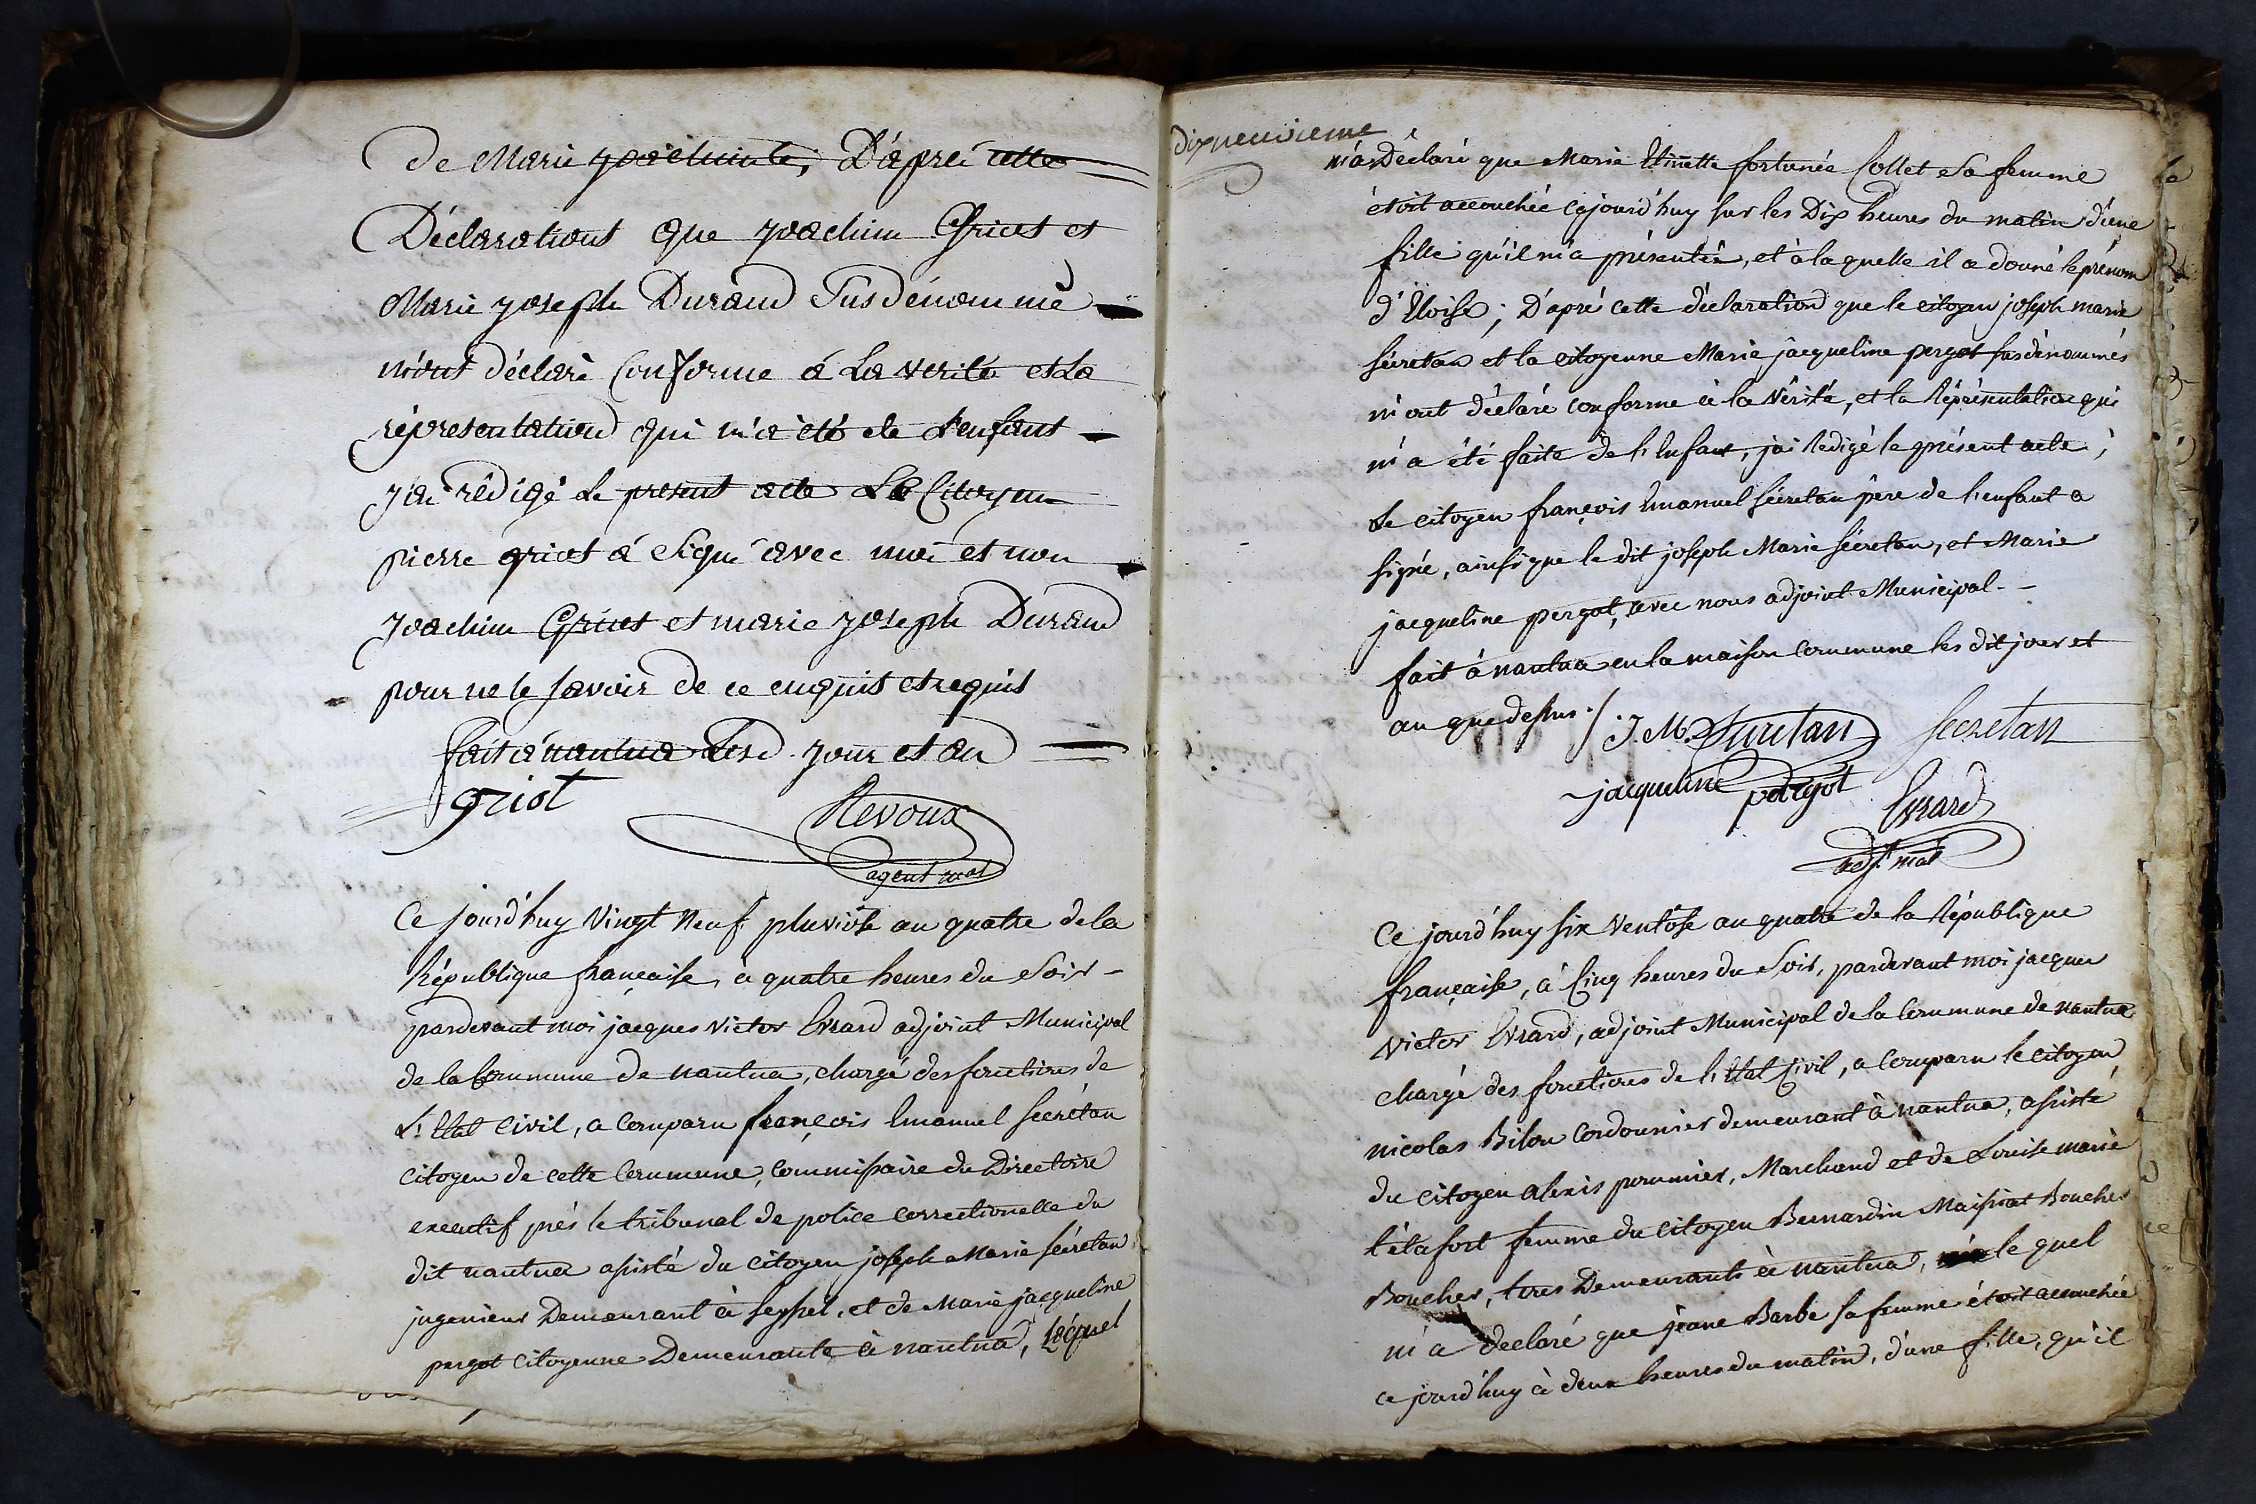 de Marie joachimte; D'après cette
Déclarations que joachim Griot et
Marie joseph Durand Susdénommé
m'ont déclaré Conforme á La verité et La
répresentation qui m'a été de L'enfant
j'ai rédigé Le present acte Le Citoyen
pierre griot á Signé avec moi et non
joachim Griot et marie joseph Durand
pour ne le savoir de ce enquis et requis
fait á nantua Lesd. jour et an
griot
Revoux
agent mal
Ce jourd'huy Vingt Neuf pluviose an quatre de la
République française, à quatre heures du Soir -
pardevant moi jacques victor Evrard adjoint Municipal
de la Commune de nantua, chargé des fonctions de
L'Etat civil, a Comparu françois Emanuel Secrétan
citoyen de cette Commune, Commissaire du Directoire
executif prés le tribunal de police correctionelle du
dit nantua assisté du citoyen joseph Marie Sécretan
ingenieur Demeurant à Seyssel, et de Marie jacqueline
pergot citoyenne Demeurante à nantua, Lequel
dixneuvieme
m'a Déclaré que Marie Etiennette fortunée Collet Sa femme
étoit accouchée cejourd'huy sur les Dix heures du matin d'une
fille qu'il m'a présentée, et à la quelle il a donné le prénom
d'Eloise; D'apré cette déclaration que le citoyen joseph marie
Sécretan et la citoyenne Marie jacqueline pergot susdénommés
m'ont déclaré conforme à la Vérité, et la Réprésentation qui
m'a été faite de l'Enfant, j'ai Redigé le présent acte,
Le citoyen françois Emanuel Sécretan père de l'enfant a
signé, ainsi que le dit joseph Marie Sécretan, et Marie
jacqueline pergot, avec nous adjoint Municipal. -
fait à nantua en la maison Commune les dit jour et
an que dessus ./. J. M. Secretan Secretan
jacqueline pergot Evrard
adjt. mal
Ce jourd'huy six Ventôse an quatre de la République
française, à Cinq heures du Soir, pardevant moi jacques
victor Evrard, adjoint Municipal de la Commune de nantua
chargé des fonctions de l'Etat Civil, a Comparu le citoyen
nicolas Bilon Cordounier demeurant à nantua, assisté
du citoyen alexis pommier, Marchand et de Louise marie
têtafort femme du citoyen Bernardin Maissiat Boucher
Boucher, tous Demeurants à nantua, le quel
m'a déclaré que jeane Barbe sa femme étoit accouchée
ce jourd'huy à deux heures du matin, d'une fille, qu'il